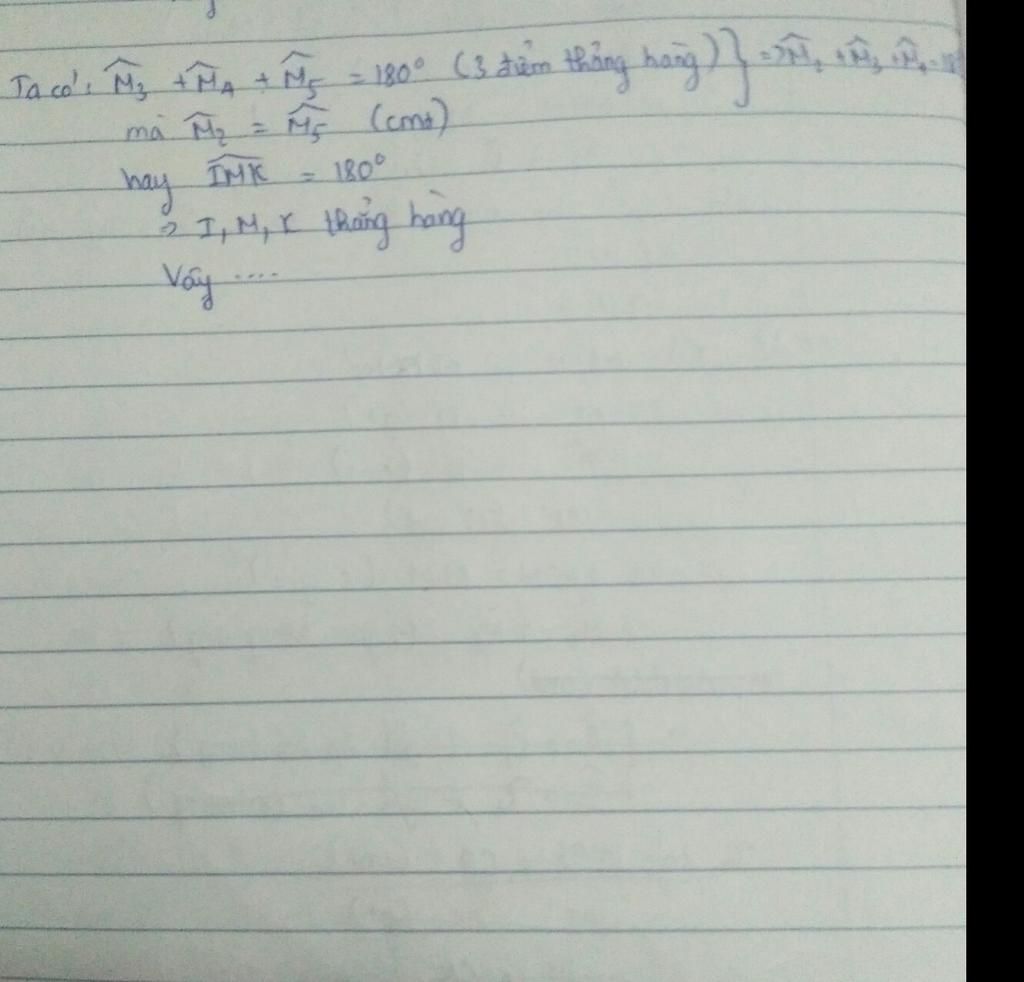 Ta có: M̂₃ + M̂₄ + M̂₅ = 180° (3 điểm thẳng hàng) } => M̂₂ + M̂₃ + M̂₄ = 18
mà M̂₂ = M̂₅ (cmt)
hay IMK = 180°
=> I, M, K thẳng hàng
Vậy ....